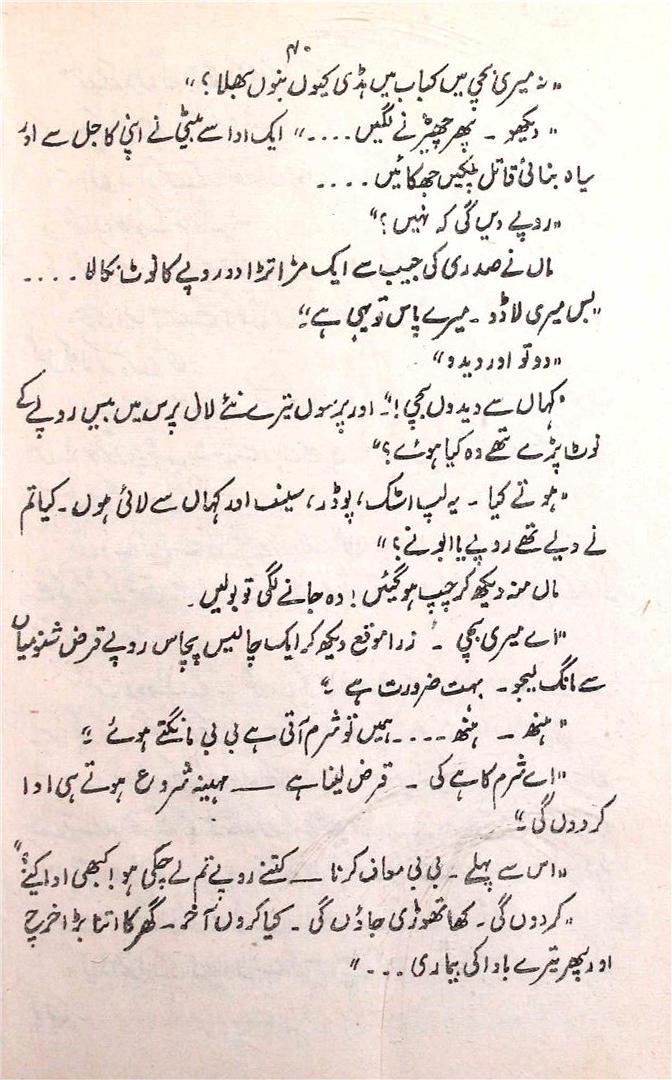 ۴۰
"نہ میری بچی میں کباب میں ہڈی کیوں بنوں بھلا؟"
"دیکھو ۔ پھر چھیڑنے لگیں ...." ایک ادا سے بیٹی نے اپنی کاجل سے اور
یاہ بنائی قاتل پلکیں جھکائیں ....
"روپے دیں گی کہ نہیں؟"
ماں نے صدری کی جیب سے ایک مڑا تڑا دو روپے کا نوٹ نکالا ....
"بس میری لاڈو ۔ میرے پاس تو یہی ہے"
"دو تو اور دیدو"
"کہاں سے دیدوں بچی!" اور پرسوں تیرے نئے لال پرس میں بیس روپے کے
نوٹ پڑے تھے وہ کیا ہوئے؟"
"ہوتے کیا ۔ یہ لپ اسٹک، پوڈر، سینٹ اور کہاں سے لائی ہوں ۔ کیا تم
نے دیے تھے روپے یا ابو نے؟"
ماں منہ دیکھ کر چپ ہو گئیں! وہ جانے لگی تو بولیں ۔
"اے میری بچی ۔ ذرا موقع دیکھ کر ایک چالیس پچاس روپے قرض شفو میاں
سے مانگ لیجو ۔ بہت ضرورت ہے ۔"
"ہنھ ۔ ہنھ .... ہمیں تو شرم آتی ہے بی بی مانگتے ہوئے ۔"
"اے شرم کاہے کی ۔ قرض لینا ہے ــــ مہینہ شروع ہوتے ہی ادا
کر دوں گی ۔"
"اس سے پہلے ۔ بی بی معاف کرنا ــــ کتنے روپے تم لے چکی ہو! کبھی ادا کیے؟"
"کر دوں گی ۔ کھا تھوڑی جاؤں گی ۔ کیا کروں آخر ۔ گھر کا اتنا بڑا خرچ
اور پھر تیرے باوا کی بیماری ..."